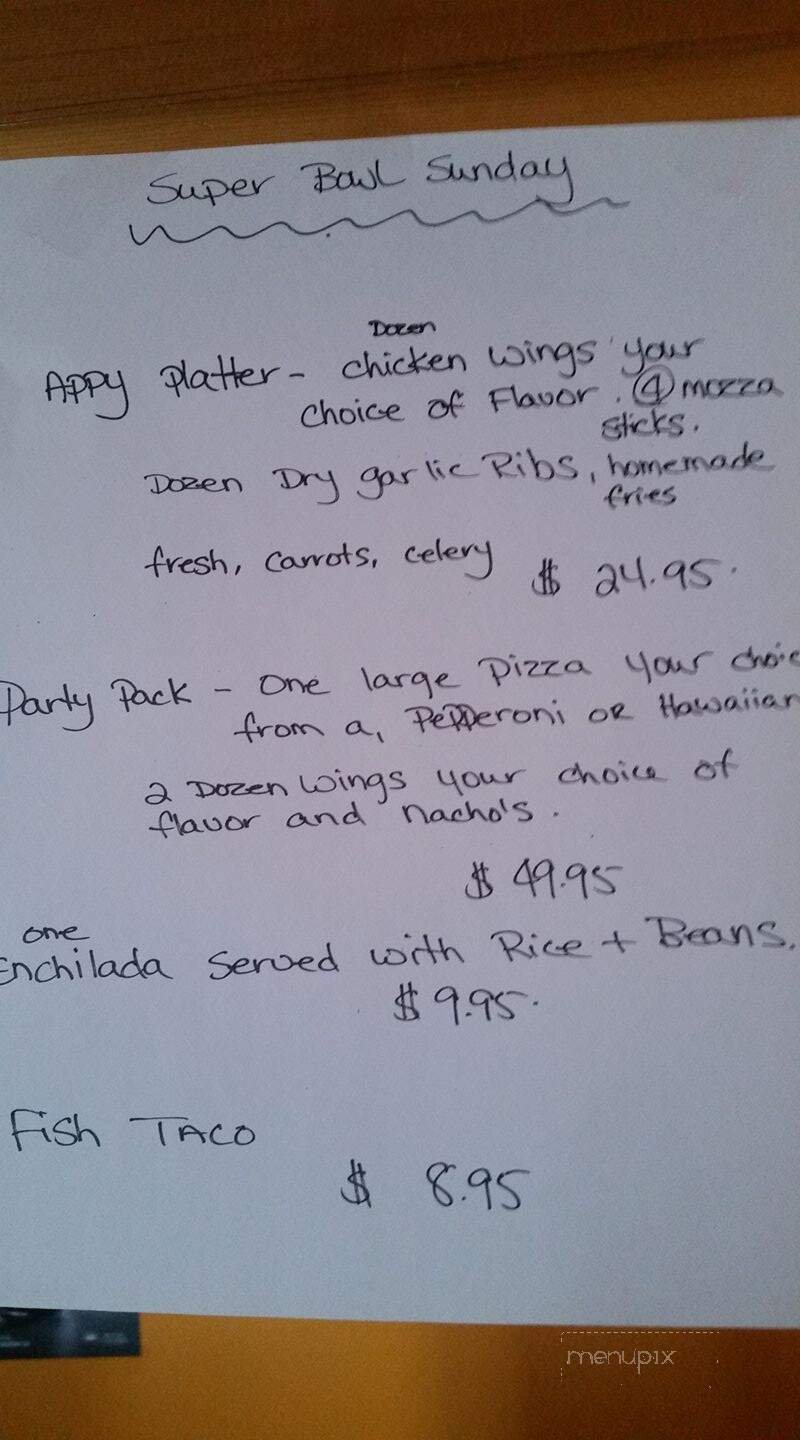 Super Bowl Sunday
Dozen
Appy Platter - chicken wings your
choice of Flavor. ④ mozza
sticks.
Dozen Dry garlic Ribs, homemade
fries
fresh, carrots, celery $ 24.95.
Party Pack - One large Pizza your choic
from a, Pepperoni or Hawaiian
2 Dozen wings your choice of
flavor and nacho's.
$ 49.95
one
Enchilada served with Rice + Beans.
$ 9.95.
Fish TACO
$ 8.95
menupix